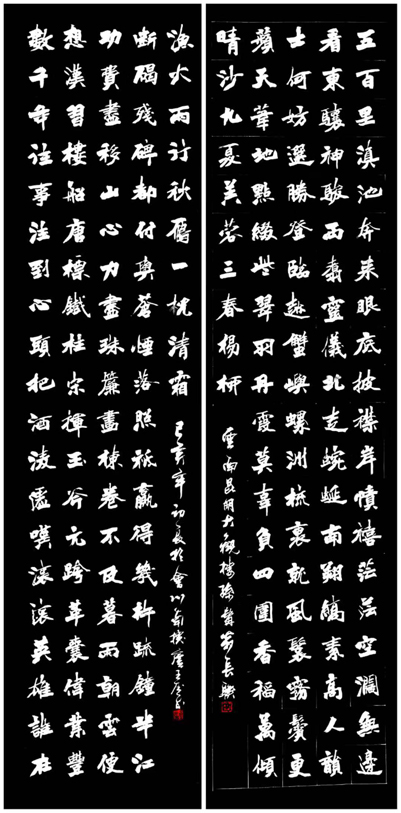 五百里滇池奔來眼底披襟岸幘禧茫茫空濶無邊
看東驤神駿西翥靈儀北走蜿蜒南翔縞素高人韻
士何妨選勝登臨趁蟹嶼螺洲梳裹就風鬟霧鬢更
蘋天葦地點綴些翠羽丹霞莫辜負四圍香稻萬頃
晴沙九夏芙蓉三春楊柳
雲南昆明大觀樓孫髯翁長聯
數千年往事注到心頭把酒凌虛嘆滾滾英雄誰在
想漢習樓船唐標鐵柱宋揮玉斧元跨革囊偉業豐
功費盡移山心力盡珠簾畫棟卷不及暮雨朝雲便
斷碣殘碑都付與蒼煙落照祗贏得幾杵疏鐘半江
漁火兩行秋雁一枕清霜
己亥年初夏於會川